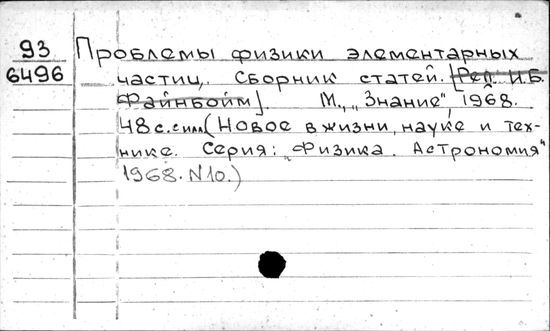 93
6496
Проблемы физики элементарных
частиц. Сборник статей. [Ред. И.Б.
Файнбойм]. М., „Знание", 1968.
48 с. с илл. (Новое в жизни, науке и тех-
нике. Серия: „Физика. Астрономия"
1968. N10.)